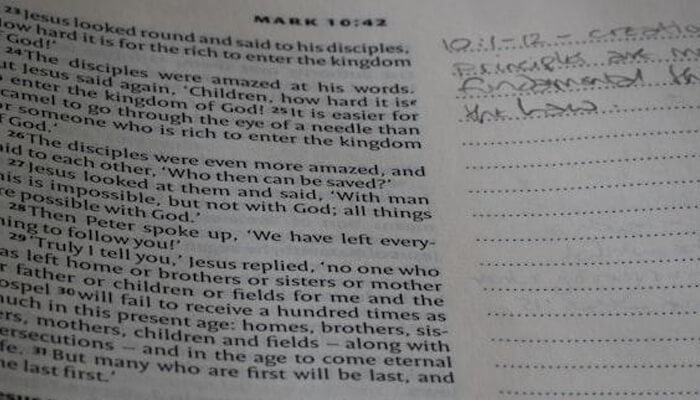 MARK 10:42
23 Jesus looked round and said to his disciples,
how hard it is for the rich to enter the kingdom
God!'
24 The disciples were amazed at his words.
ut Jesus said again, 'Children, how hard it is
enter the kingdom of God! 25 It is easier for
camel to go through the eye of a needle than
or someone who is rich to enter the kingdom
f God.'
26 The disciples were even more amazed, and
aid to each other, 'Who then can be saved?'
27 Jesus looked at them and said, 'With man
his is impossible, but not with God; all things
re possible with God.'
28 Then Peter spoke up, 'We have left every-
hing to follow you!'
29 'Truly I tell you,' Jesus replied, 'no one who
as left home or brothers or sisters or mother
r father or children or fields for me and the
ospel 30 will fail to receive a hundred times as
uch in this present age: homes, brothers, sis-
ers, mothers, children and fields – along with
ersecutions – and in the age to come eternal
fe. 31 But many who are first will be last, and
he last first.'
10:1-12 - creation
Principles are
fundamental
the Law.